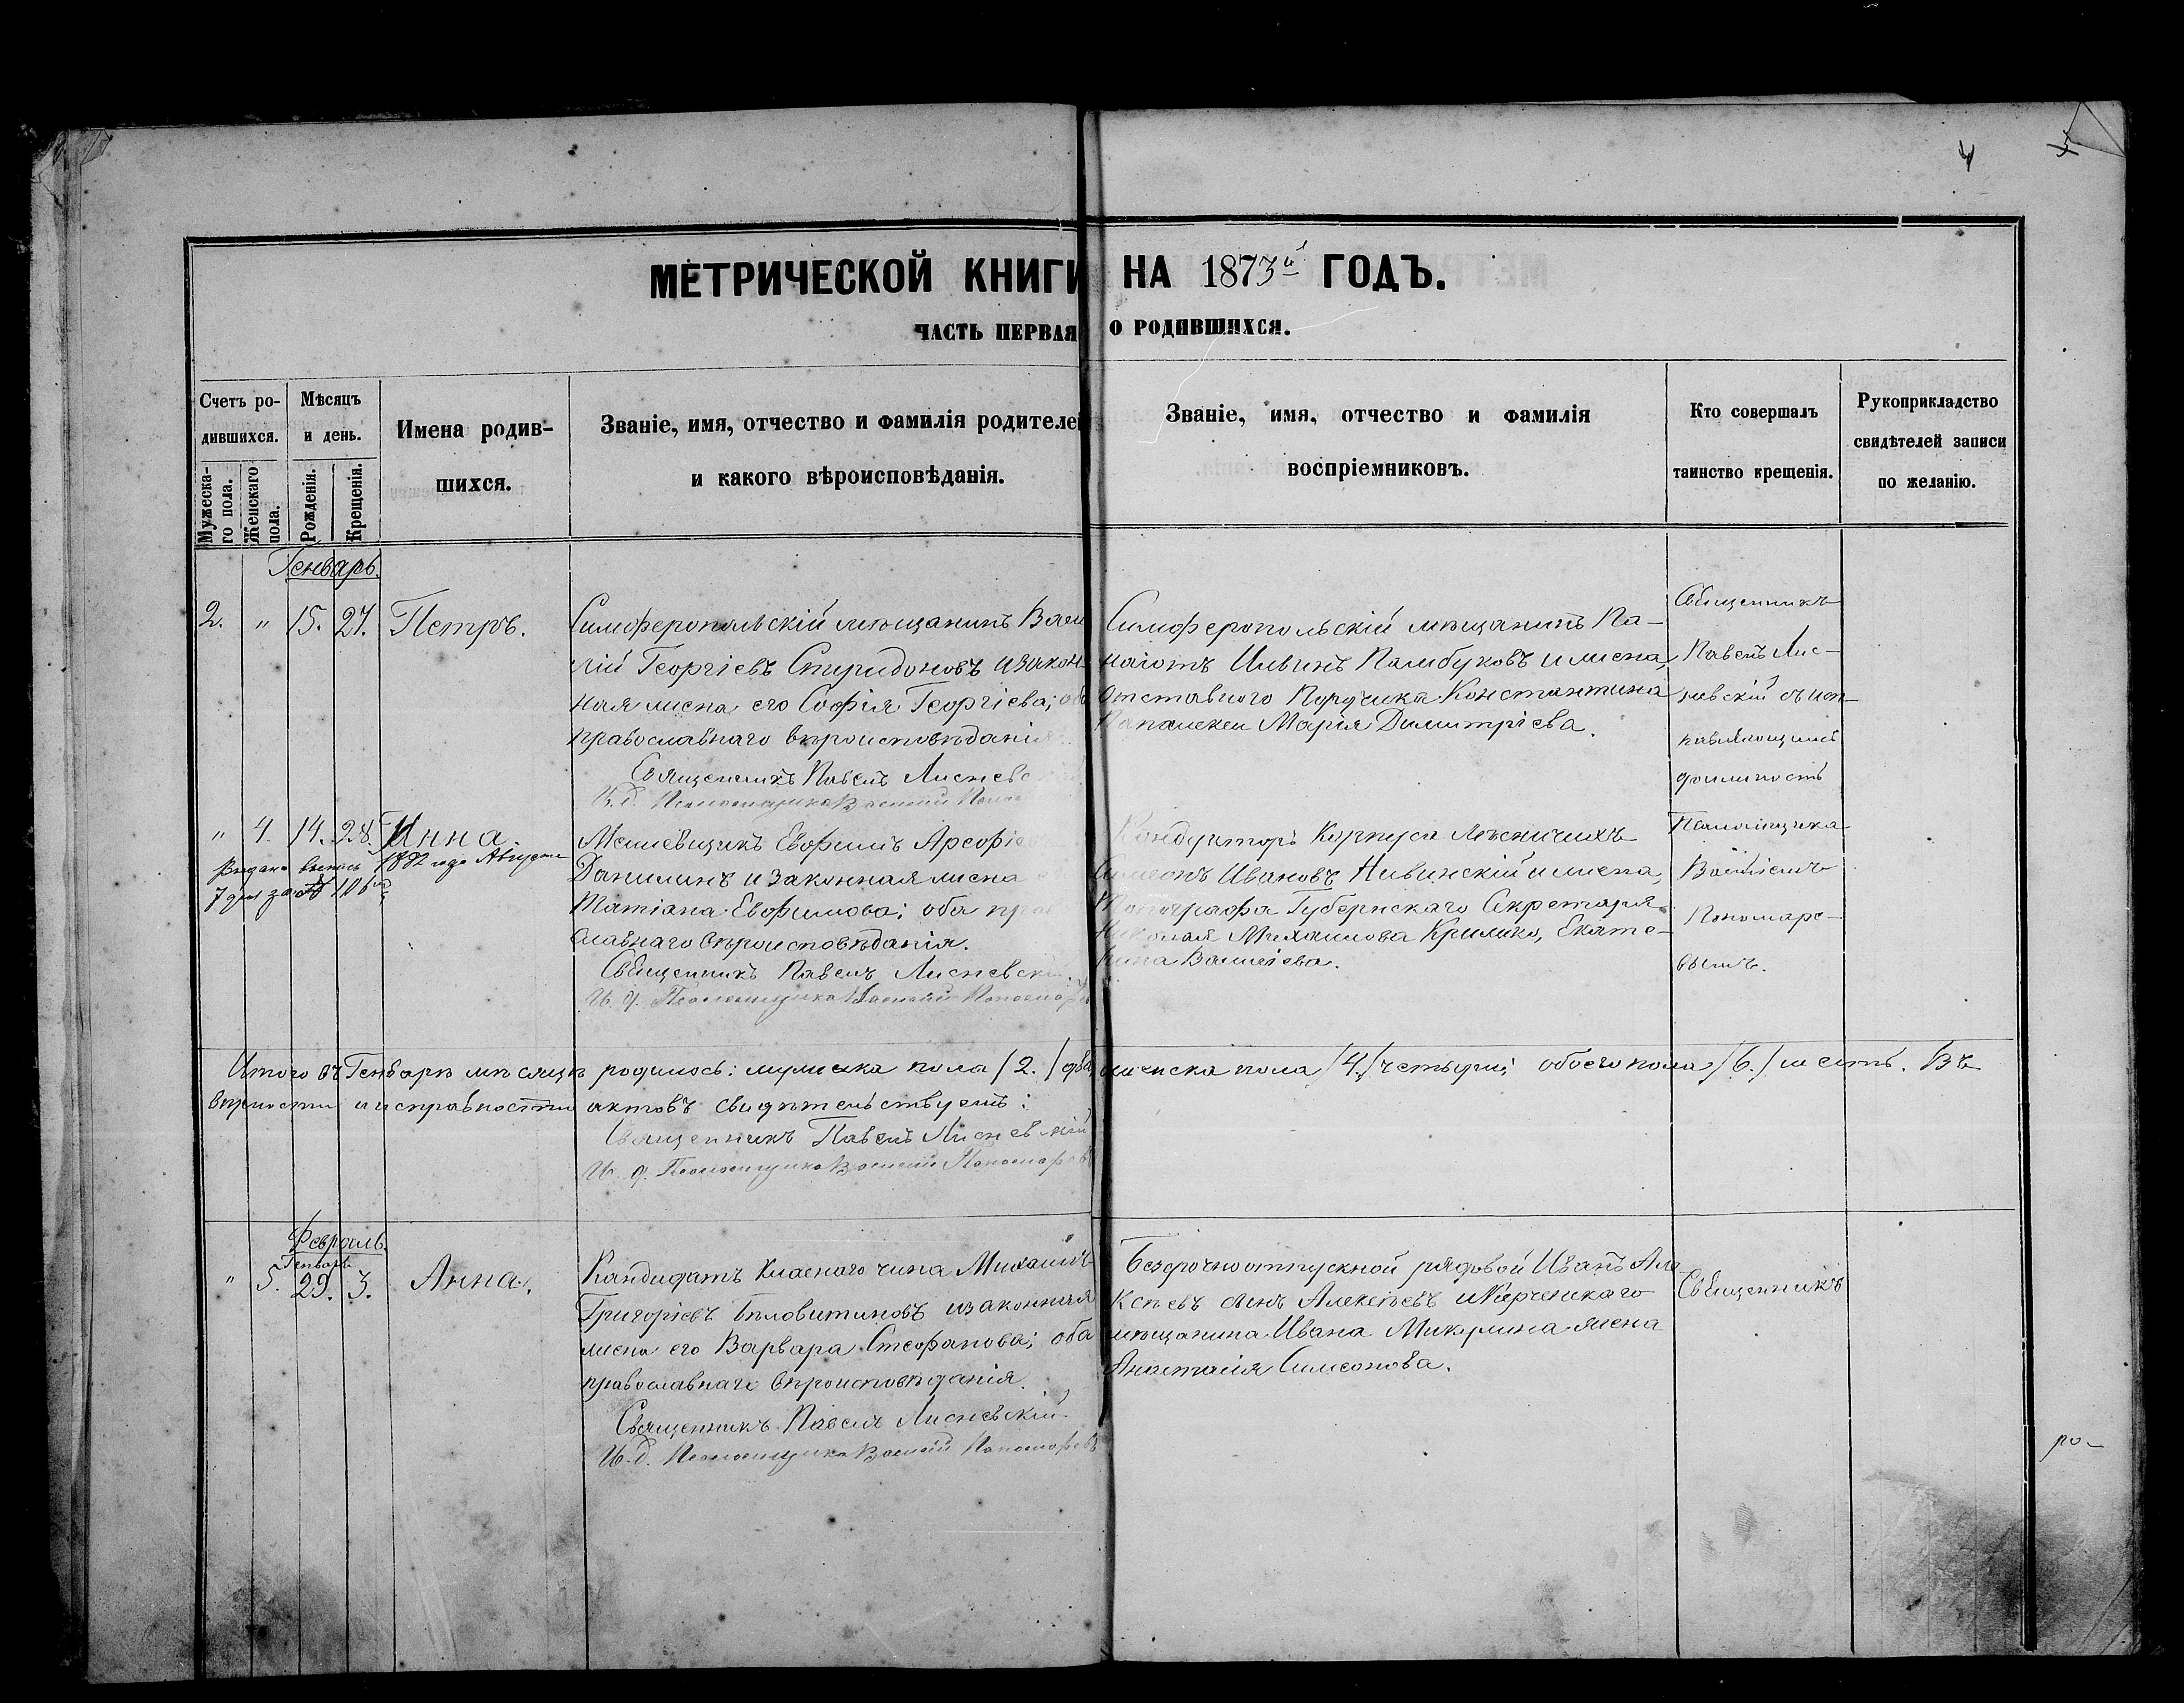 4
МЕТРИЧЕСКОЙ КНИГИ НА 1873й ГОДЪ.
ЧАСТЬ ПЕРВАЯ О РОДИВШИХСЯ.
Счетъ ро-
дившихся.
Мужеска-
го пола.
Женскаго
пола.
Мѣсяцъ
и день.
Рожденія.
Крещенія.
Имена родив-
шихся.
Званіе, имя, отчество и фамилія родителей
и какого вѣроисповѣданія.
Званіе, имя, отчество и фамилія
воспріемниковъ.
Кто совершалъ
таинство крещенія.
Рукоприкладство
свидѣтелей записи
по желанію.
Генварь.
2. " 15. 27. Петръ.
Симферопольскій мѣщанинъ Васи
лій Георгіевъ Спиридоновъ и закон-
ная жена его София Георгіева; оба
православнаго вѣроисповѣданія.
Священникъ Павелъ Лисневс
И. д. Псаломщика Василій Поно
Симферопольскій мѣщанинъ Па-
наіотъ Ильинъ Палибуковъ и жена
отставного Поручика Константина
Папалекси Марія Димитріева.
Священникъ
Павелъ Лис-
невскій съ исп-
равляющимъ
должность
Псаломщика
Василіемъ
Пономаре-
вымъ.
" 4. 14. 28. Инна.
Выдана выпись 1882 года Августа
7 дня за № 106
Ефимъ
Данилинъ и законная жена
Татіана Евфимова; оба прав
славнаго вѣроисповѣданія.
Священникъ Павелъ Лисневскій.
И. д. Псаломщика Василій Пономарев
Кондукторъ Корпуса Лѣсничихъ
Симеонъ Ивановъ Нивинскій и жена,
Топографа Губернскаго Секретаря
Николая Михаилова Кримко, Екате-
рина Василіева.
Итого въ Генварѣ мѣсяцѣ родилось: мужеска пола /2./ два женска пола /4./ четыре; обоего пола /6./ шесть. Въ
вѣрности и исправности актовъ свидѣтельствуемъ:
Священникъ Павелъ Лисневскій
И. д. Псаломщика Василій Пономаревъ
Февраль.
Генваря
" 5. 29. 3. Анна.
Кандидатъ Класнаго чина Михаилъ
Григоріевъ Бѣловитиновъ и законная
жена его Варвара Стефанова; оба
православнаго вѣроисповѣданія.
Священникъ Павелъ Лисневскій.
И. д. Псаломщика Василій Пономаревъ
Безсрочноотпускной рядовой Иванъ Але
ксѣевъ сынъ Алексѣевъ и Керченскаго
мѣщанина Ивана Микулина жена
Анастасія Симеонова.
Священникъ
ро-